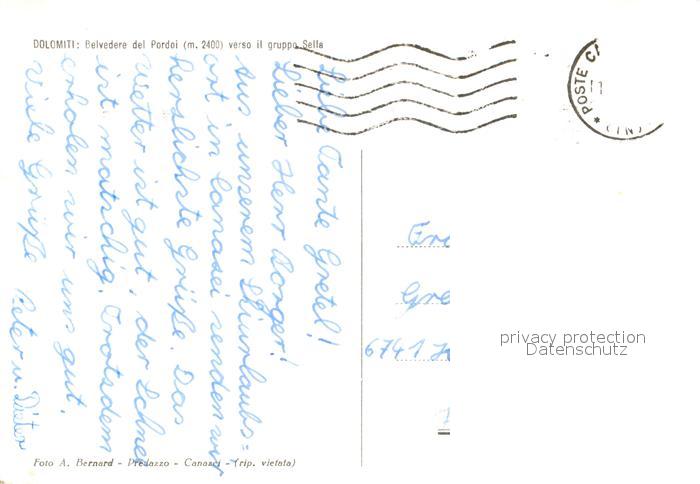 DOLOMITI: Belvedere del Pordoi (m. 2400) verso il gruppo Sella
Liebe Tante Gretel!
Lieber Herr Borger!
Aus unserem Skiurlaubs=
ort in Canazei senden wir
herzlichste Grüße. Das
Wetter ist gut, der Schnee
ist matschig. Trotzdem
erholen wir uns gut.
Viele Grüße
Peter u. Dieter
Foto A. Bernard - Predazzo - Canazei - (rip. vietata)
* POSTE
Gre
6741
privacy protection
Datenschutz